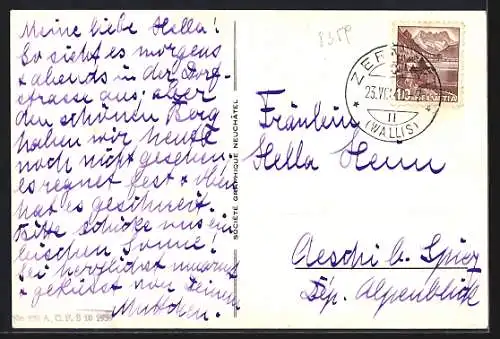 Meine liebe Hella!
So sieht es morgens
& abends in der Dorf-
strasse aus; aber
den schönen Berg
haben wir heute
noch nicht gesehen,
es regnet fest & oben
hat es geschneit.
Bitte schicke uns ein
bisschen Sonne!
Sei herzlichst umarmt
& geküsst von Deinem
Mutchen.
A. C. F. 5 10 193
SOCIÉTÉ GRAPHIQUE NEUCHÂTEL
8359
ZERMATT
(WALLIS)
HELVETIA
Fräulein
Hella
Aeschi b. Spiez
Dép. Alpenblick